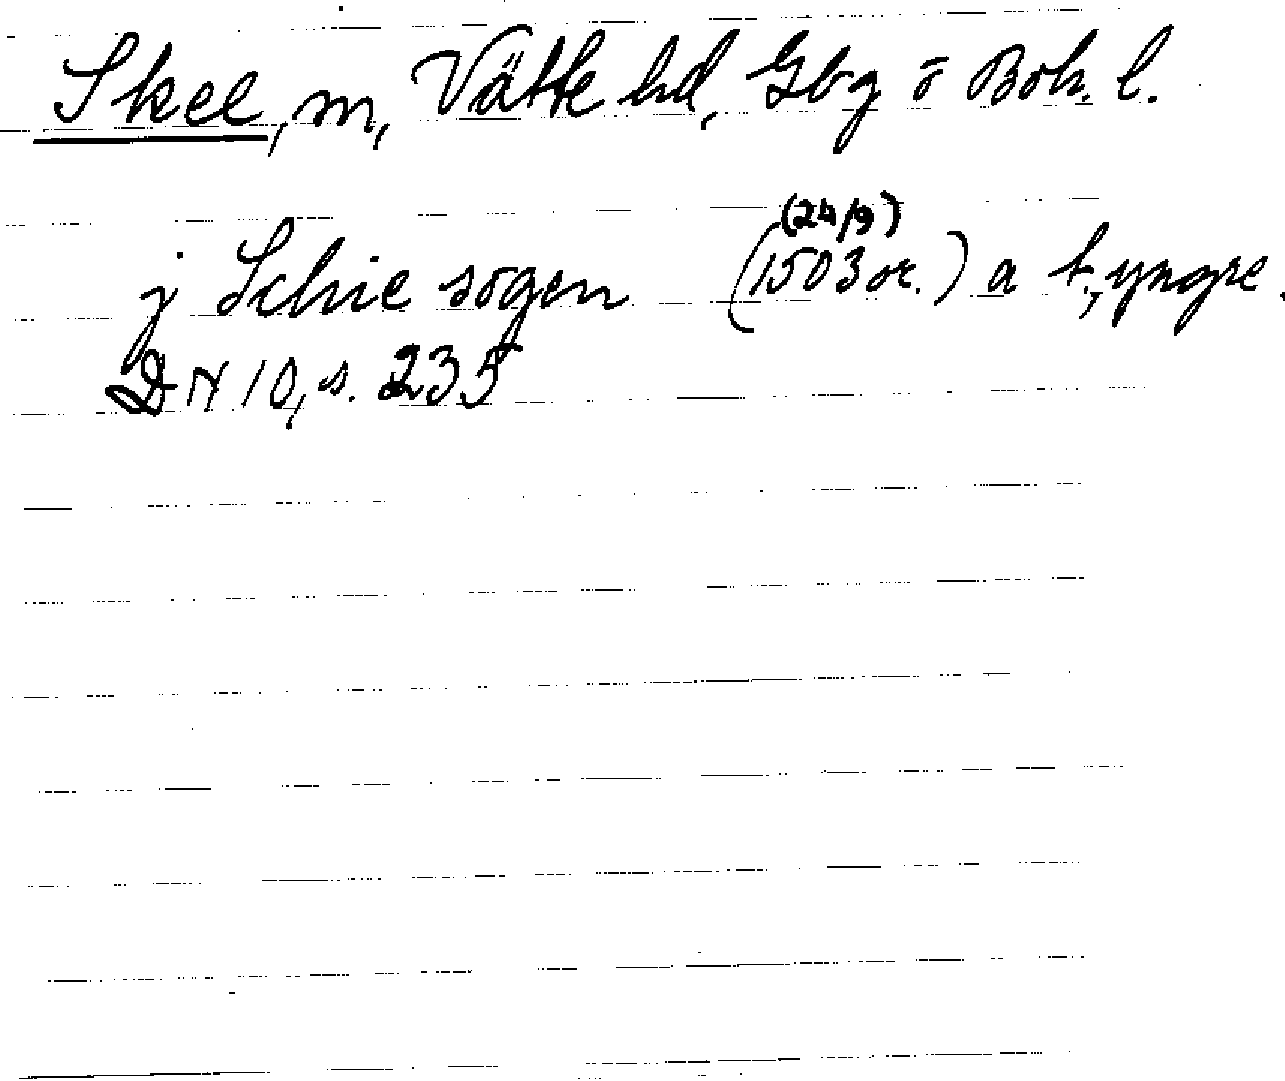 Skee, m, Vätte hd, Gbg o Boh. l.
(24/9)
j Schie sogen (1503 or.) a t., yngre.
DN 10, s. 235